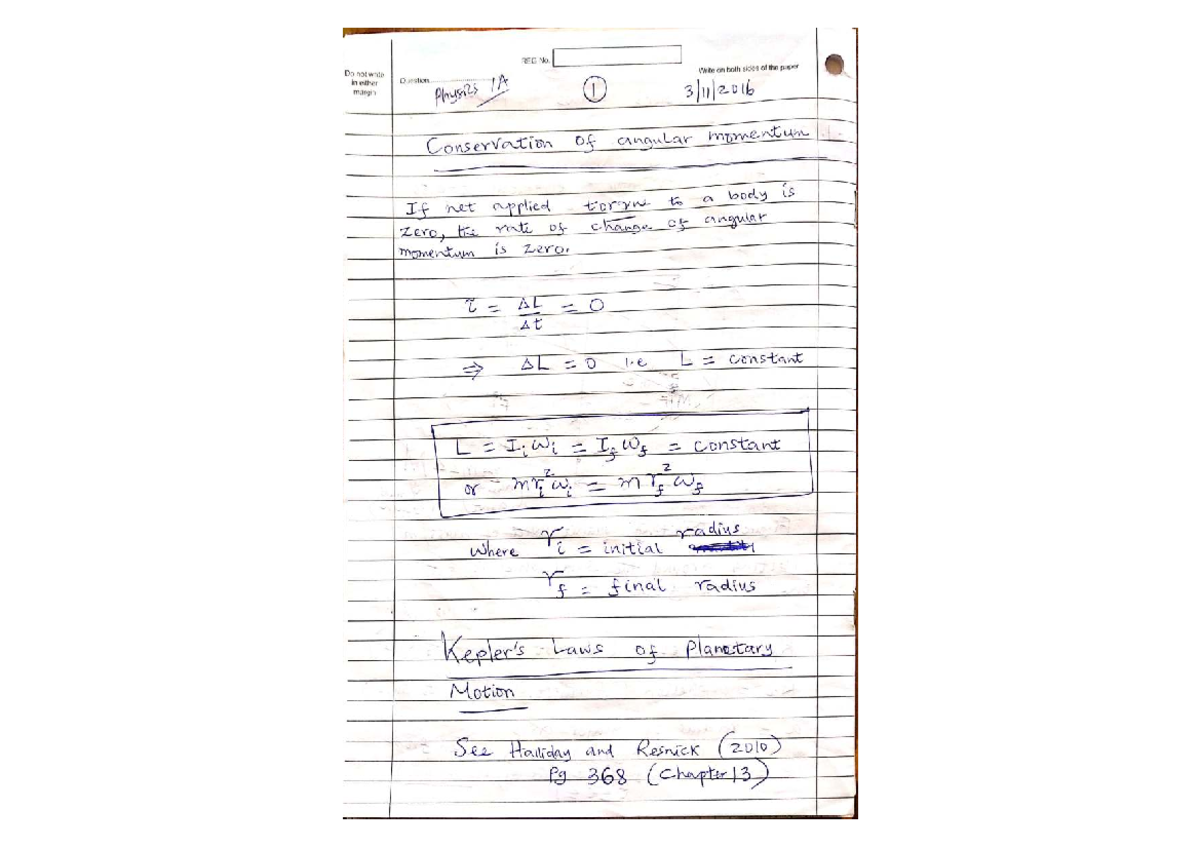 REG No.
Do not write
in either
margin
Question
Write on both sides of the paper
Physics 1A
1
3/11/2016
Conservation of angular momentum
If net applied to a body is
zero, the rate of change of angular
momentum is zero.
τ = ΔL/Δt = 0
⇒ ΔL = 0 i.e L = constant
L = Iᵢωᵢ = I_fω_f = constant
or mrᵢ²ωᵢ = mr_f²ω_f
where rᵢ = initial radius
r_f = final radius
Kepler's Laws of Planetary
Motion
See Halliday and Resnick (2010)
Pg 368 (Chapter 13)